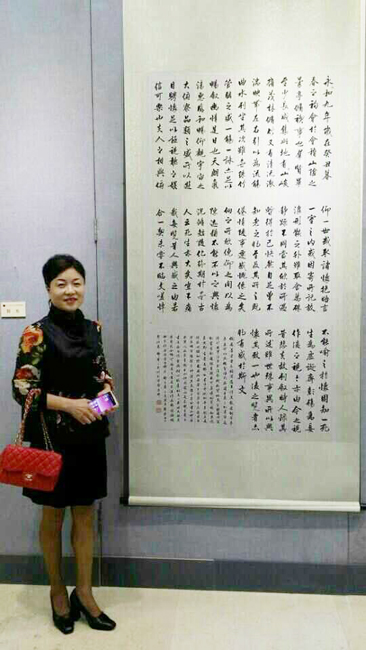 永和九年歲在癸丑暮
春之初會於會稽山陰之
蘭亭修禊事也羣賢畢
至少長咸集此地有崇山峻
嶺茂林修竹又有清流激
湍映帶左右引以為流觴
曲水列坐其次雖無絲竹
管絃之盛一觴一詠亦足以
暢敘幽情是日也天朗氣
清惠風和暢仰觀宇宙之
大俯察品類之盛所以遊
目騁懷足以極視聽之娛
信可樂也夫人之相與俯
仰一世或取諸懷抱悟言
一室之內或因寄所託放
浪形骸之外雖取舍萬殊
靜躁不同當其欣於所遇
暫得於己快然自足曾不
知老之將至及其所之既
惓情隨事遷感慨係之矣
向之所欣俛仰之間以為
陳迹猶不能不以之興懷
況修短隨化終期於盡古
人云死生亦大矣豈不痛
哉每覽昔人興感之由若
合一契未嘗不臨文嗟悼
不能喻之於懷固知一死
生為虛誕齊彭殤為妄
作後之視今亦由今之視
昔悲夫故列敘時人錄其
所述雖世殊事異所以興
懷其致一也後之覽者亦
將有感於斯文